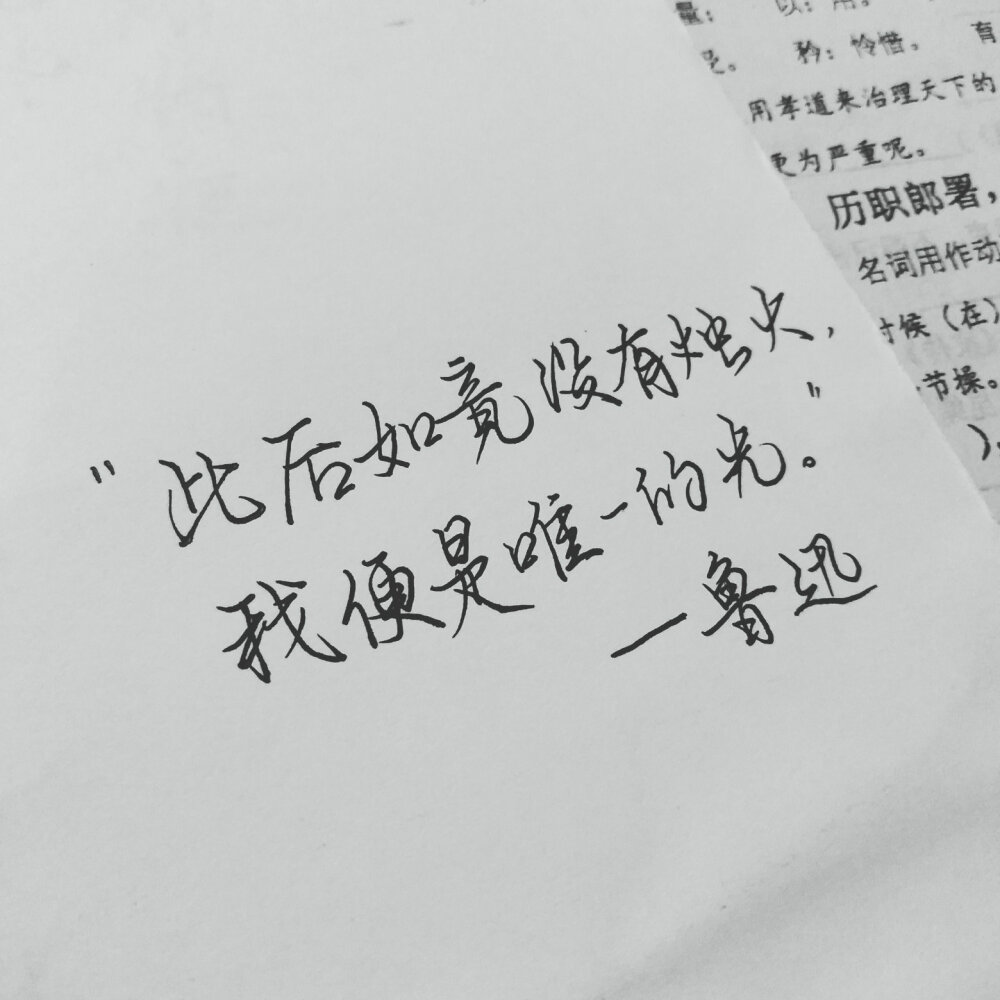 量： 以：用。
矜：怜惜。 有
用孝道来治理天下的
更为严重呢。
历职郎署，
名词用作动
时候（在）
节操。
）。
“此后如竟没有烛火，
我便是唯一的光。”
—鲁迅